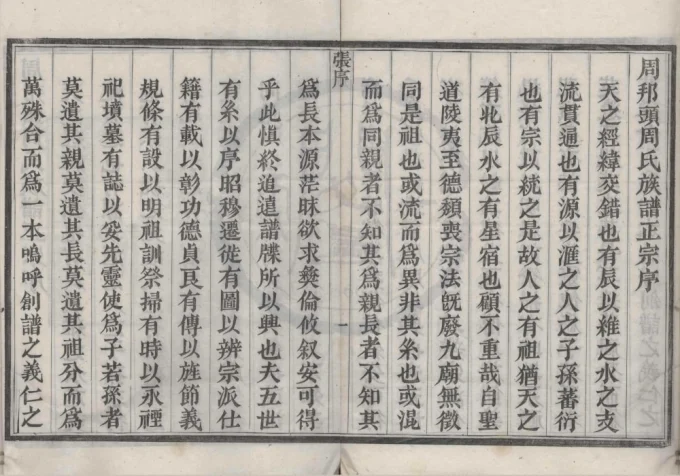 周邦頭周氏族譜正宗序
天之經緯交錯也有辰以維之水之支
流貫通也有源以滙之人之子孫蕃衍
也有宗以統之是故人之有祖猶天之
有北辰水之有星宿也顧不重哉自聖
道陵夷至德頹喪宗法旣廢九廟無徵
同是祖也或流而爲異非其系也或混
而爲同親者不知其爲親長者不知其
張序
一
爲長本源茫昧欲求彝倫攸叙安可得
乎此慎終追遠譜牒所以興也夫五世
有系以序昭穆遷徙有圖以辨宗派仕
籍有載以彰功德貞良有傳以旌節義
規條有設以明祖訓祭掃有時以永禋
祀墳墓有誌以妥先靈使爲子若孫者
莫遺其親莫遺其長莫遺其祖分而爲
萬殊合而爲一本嗚呼創譜之義仁之